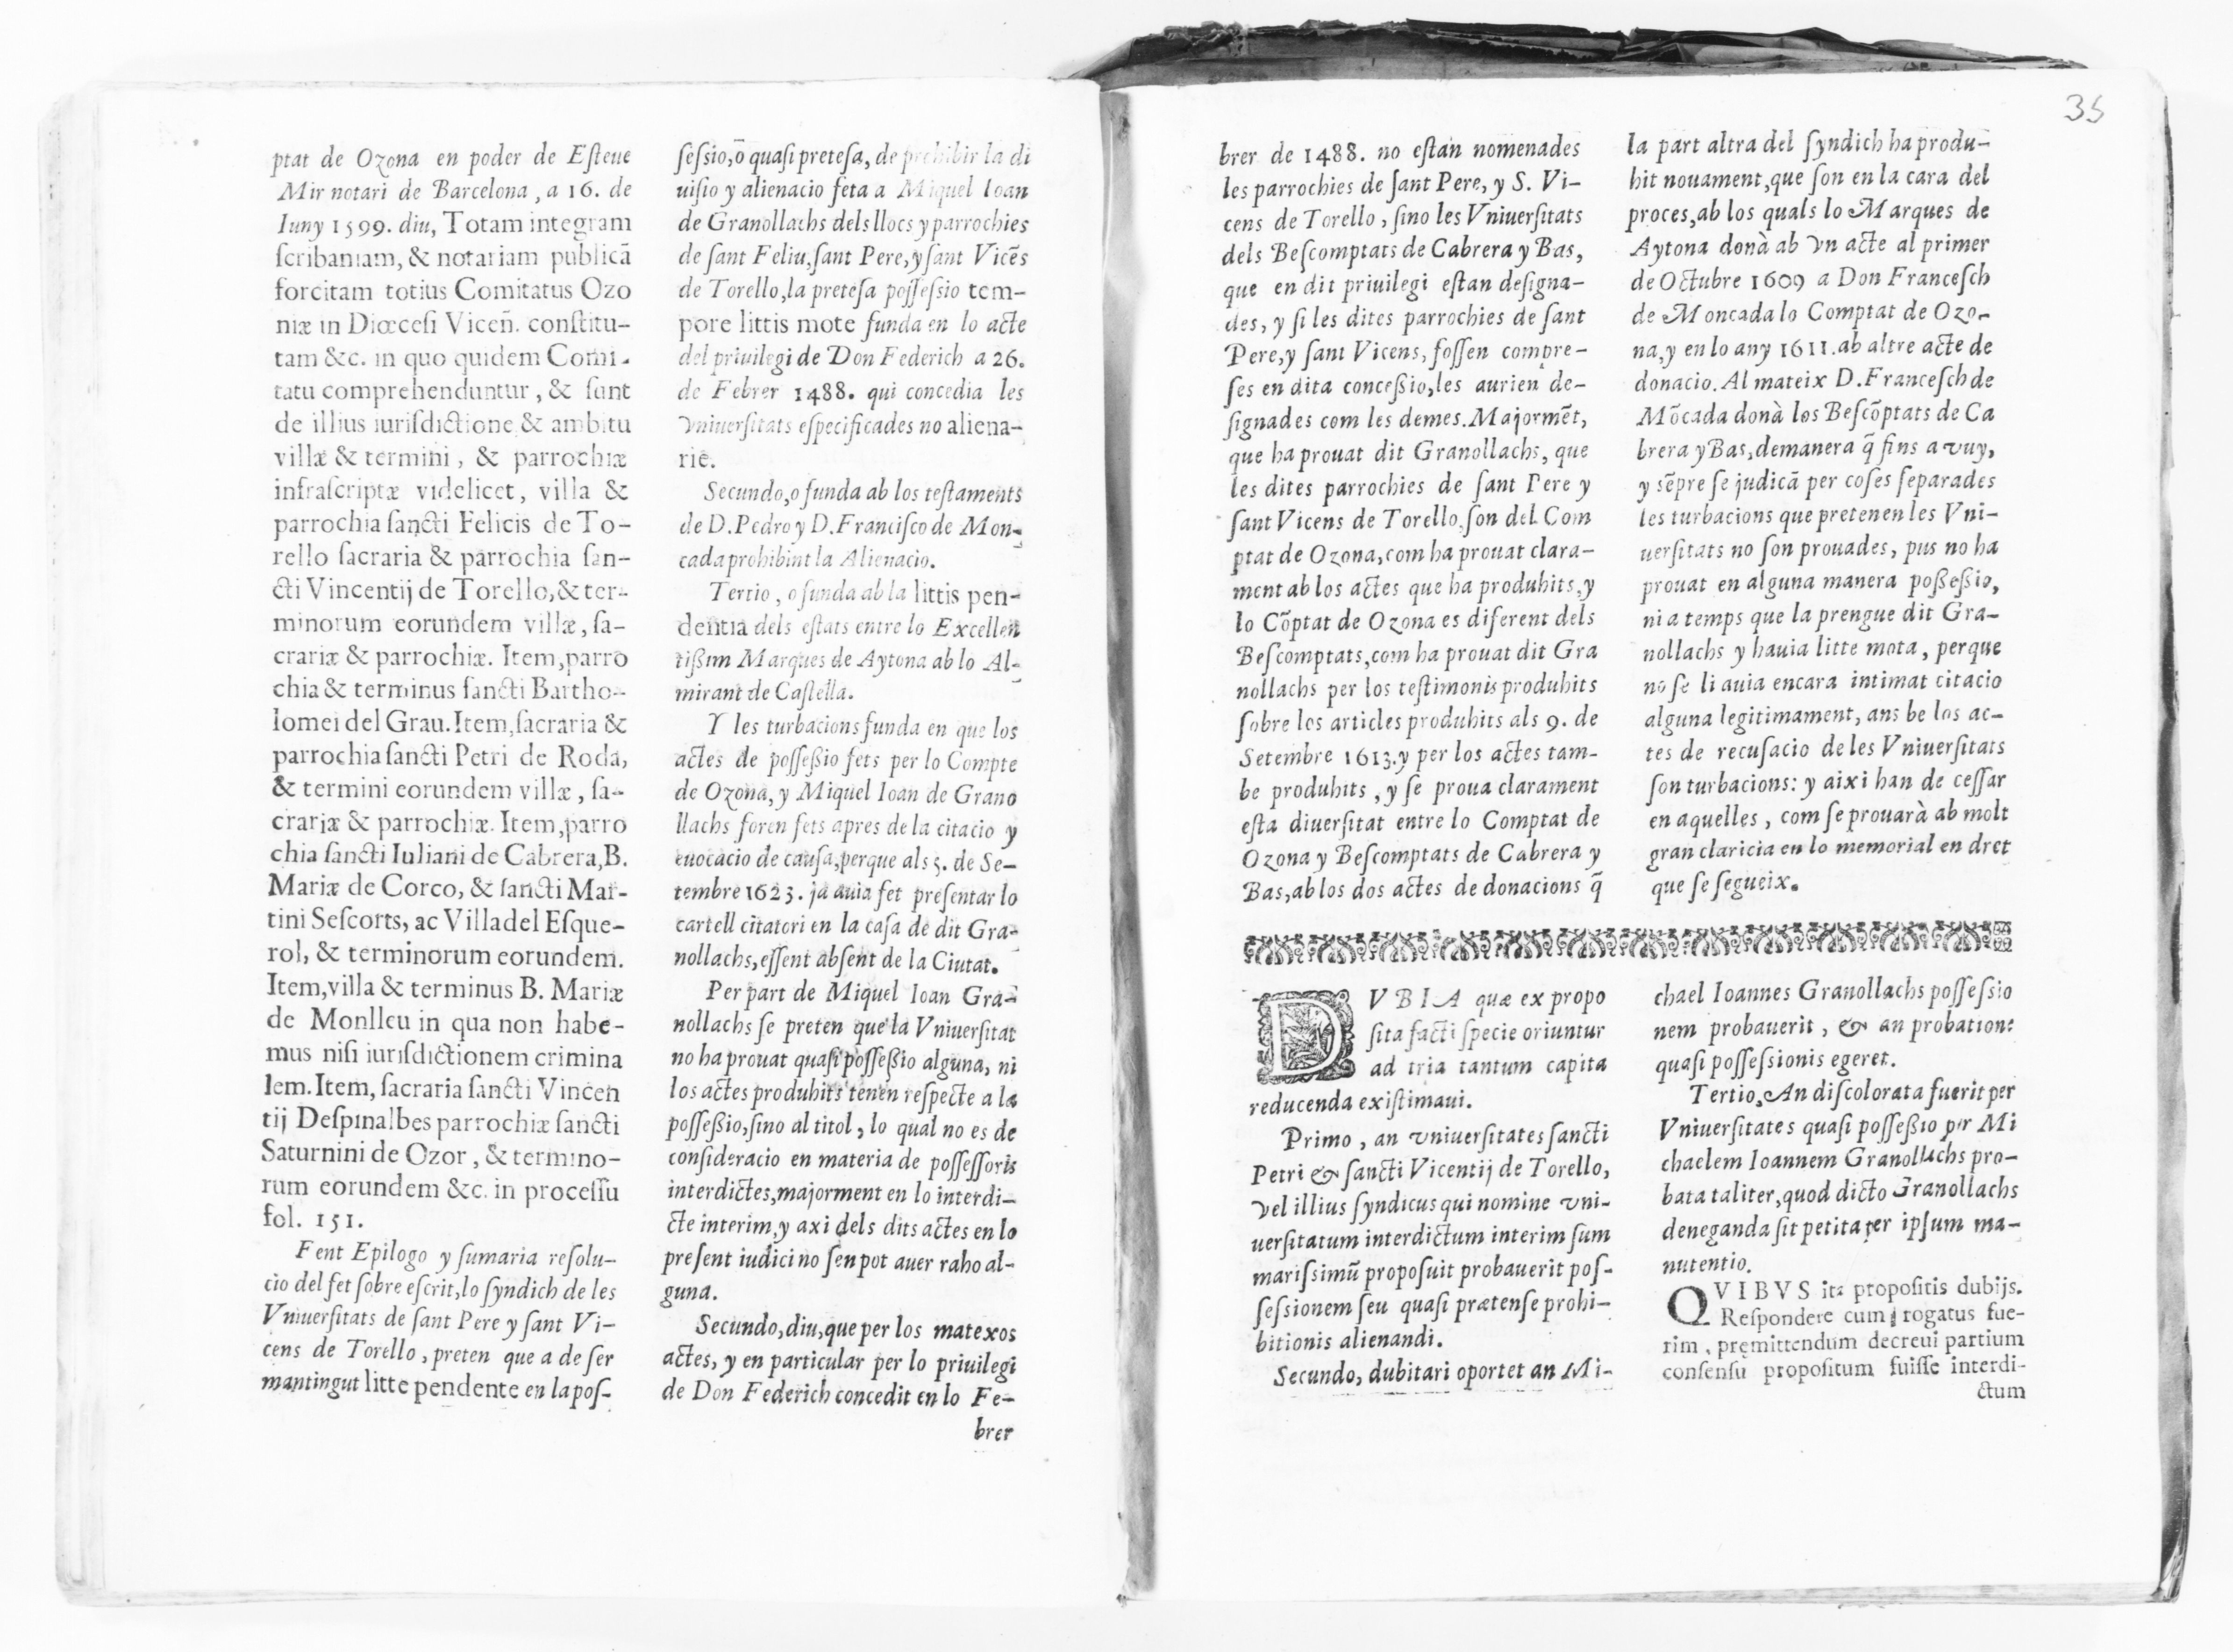 ptat de Ozona en poder de Esteue
Mir notari de Barcelona, a 16. de
Iuny 1599. diu, Totam integram
scribaniam, & notariam publicā
forcitam totius Comitatus Ozo
niæ in Diœcesi Viceñ. constitu-
tam &c. in quo quidem Comi-
tatu comprehenduntur, & sunt
de illius iurisdictione & ambitu
villæ & termini, & parrochiæ
infrascriptæ videlicet, villa &
parrochia sancti Felicis de To-
rello sacraria & parrochia san-
cti Vincentij de Torello, & ter-
minorum eorundem villæ, sa-
crariæ & parrochiæ. Item, parro
chia & terminus sancti Bartho-
lomei del Grau. Item, sacraria &
parrochia sancti Petri de Roda,
& termini eorundem villæ, sa-
crariæ & parrochiæ. Item, parro
chia sancti Iuliani de Cabrera, B.
Mariæ de Corco, & sancti Mar-
tini Sescorts, ac Villadel Esque-
rol, & terminorum eorundem.
Item, villa & terminus B. Mariæ
de Monlleu in qua non habe-
mus nisi iurisdictionem crimina
lem. Item, sacraria sancti Vincen
tij Despinalbes parrochiæ sancti
Saturnini de Ozor, & termino-
rum eorundem &c. in processu
fol. 151.
Fent Epilogo y sumaria resolu-
cio del fet sobre escrit, lo syndich de les
Vniuersitats de sant Pere y sant Vi-
cens de Torello, preten que a de ser
mantingut litte pendente en la pos-
sessio, ō quasi pretesa, de prohibir la di
uisio y alienacio feta a Miquel Ioan
de Granollachs dels llocs y parrochies
de sant Feliu, sant Pere, y sant Vicēs
de Torello, la pretesa possessio tem-
pore littis mote funda en lo acte
del priuilegi de Don Federich a 26.
de Febrer 1488. qui concedia les
vniuersitats especificades no aliena-
rie.
Secundo, o funda ab los testaments
de D. Pedro y D. Francisco de Mon-
cada prohibint la Alienacio.
Tertio, o funda ab la littis pen-
dentia dels estats entre lo Excellen
tißim Marques de Aytona ab lo Al-
mirant de Castella.
Y les turbacions funda en que los
actes de posseßio fets per lo Compte
de Ozona, y Miquel Ioan de Grano
llachs foren fets apres de la citacio y
euocacio de causa, perque als 5. de Se-
tembre 1623. ja auia fet presentar lo
cartell citatori en la casa de dit Gra-
nollachs, essent absent de la Ciutat.
Per part de Miquel Ioan Gra-
nollachs se preten que la Vniuersitat
no ha prouat quasi posseßio alguna, ni
los actes produhits tenen respecte a la
posseßio, sino al titol, lo qual no es de
consideracio en materia de possessoris
interdictes, majorment en lo interdi-
cte interim, y axi dels dits actes en lo
present iudici no sen pot auer raho al-
guna.
Secundo, diu, que per los matexos
actes, y en particular per lo priuilegi
de Don Federich concedit en lo Fe-
brer
35
brer de 1488. no estan nomenades
les parrochies de sant Pere, y S. Vi-
cens de Torello, sino les Vniuersitats
dels Bescomptats de Cabrera y Bas,
que en dit priuilegi estan designa-
des, y si les dites parrochies de sant
Pere, y sant Vicens, fossen compre-
ses en dita conceßio, les aurien de-
signades com les demes. Majormēt,
que ha prouat dit Granollachs, que
les dites parrochies de sant Pere y
sant Vicens de Torello, son del Com
ptat de Ozona, com ha prouat clara-
ment ab los actes que ha produhits, y
lo Cōptat de Ozona es diferent dels
Bescomptats, com ha prouat dit Gra
nollachs per los testimonis produhits
sobre los articles produhits als 9. de
Setembre 1613. y per los actes tam-
be produhits, y se proua clarament
esta diuersitat entre lo Comptat de
Ozona y Bescomptats de Cabrera y
Bas, ab los dos actes de donacions q̄
la part altra del syndich ha produ-
hit nouament, que son en la cara del
proces, ab los quals lo Marques de
Aytona donà ab vn acte al primer
de Octubre 1609 a Don Francesch
de Moncada lo Comptat de Ozo-
na, y en lo any 1611. ab altre acte de
donacio. Al mateix D. Francesch de
Mōcada donà los Bescōptats de Ca
brera y Bas, demanera q̄ fins a vuy,
y sēpre se judicā per coses separades
les turbacions que pretenen les Vni-
uersitats no son prouades, pus no ha
prouat en alguna manera poßeßio,
ni a temps que la prengue dit Gra-
nollachs y hauia litte mota, perque
no se li auia encara intimat citacio
alguna legitimament, ans be los ac-
tes de recusacio de les Vniuersitats
son turbacions: y aixi han de cessar
en aquelles, com se prouarà ab molt
gran claricia en lo memorial en dret
que se segueix.
DVBIA quæ ex propo
sita facti specie oriuntur
ad tria tantum capita
reducenda existimaui.
Primo, an vniuersitates sancti
Petri & sancti Vicentij de Torello,
vel illius syndicus qui nomine vni-
uersitatum interdictum interim sum
marissimū proposuit probauerit pos-
sessionem seu quasi prætense prohi-
bitionis alienandi.
Secundo, dubitari oportet an Mi-
chael Ioannes Granollachs possessio
nem probauerit, & an probatione
quasi possessionis egeret.
Tertio, An discolorata fuerit per
Vniuersitates quasi posseßio per Mi
chaelem Ioannem Granollachs pro-
bata taliter, quod dicto Granollachs
deneganda sit petita per ipsum ma-
nutentio.
QVIBVS ita propositis dubijs.
Respondere cum rogatus fue-
rim, premittendum decreui partium
consensu propositum fuisse interdi-
ctum